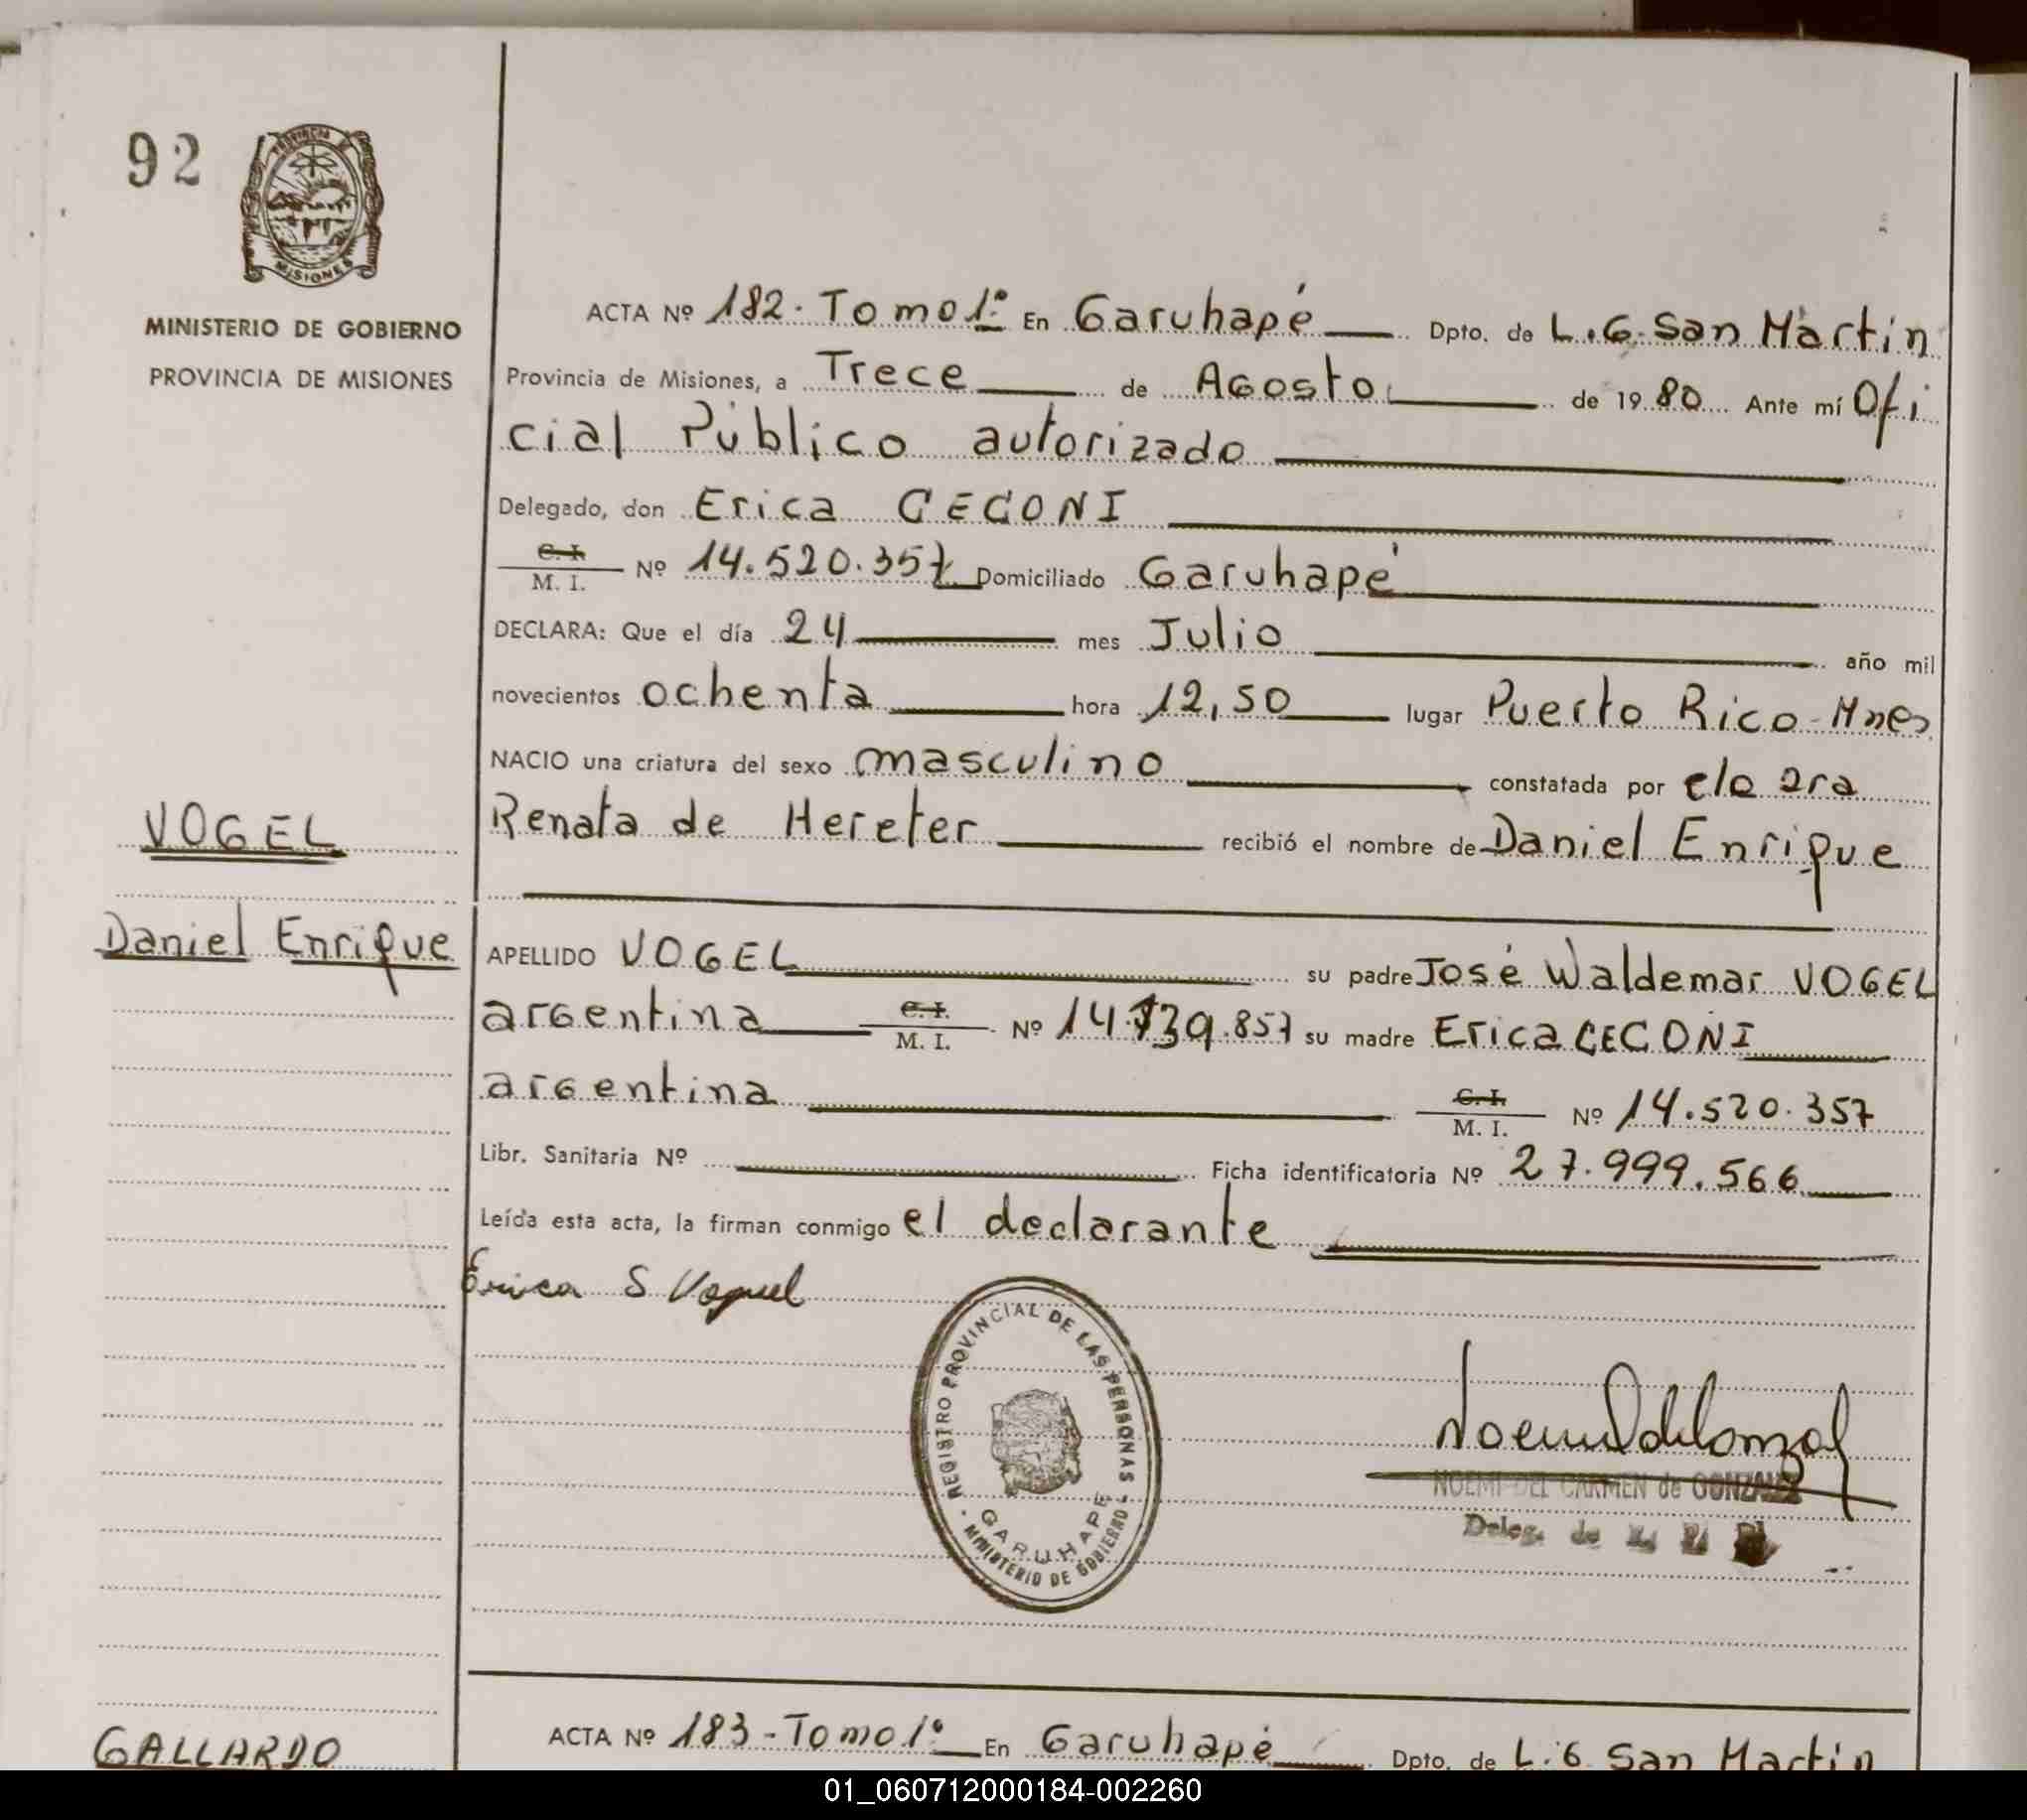 92
PROVINCIA DE
MISIONES
MINISTERIO DE GOBIERNO
PROVINCIA DE MISIONES
ACTA Nº 182. Tomo 1º En Garuhapé Dpto. de L.G. San Martin
Provincia de Misiones, a Trece de Agosto de 1980 Ante mí Ofi
cial Público autorizado
Delegado, don Erica CECONI
C. I.
M. I. Nº 14.520.357 Domiciliado Garuhapé
DECLARA: Que el día 24 mes Julio año mil
novecientos ochenta hora 12,50 lugar Puerto Rico-Mnes
NACIO una criatura del sexo masculino constatada por
Renata de Hereter recibió el nombre de Daniel Enrique
VOGEL
Daniel Enrique
APELLIDO VOGEL su padre José Waldemar VOGEL
argentina C. I. M. I. Nº 14.739.857 su madre Erica CECONI
argentina C. I. M. I. Nº 14.520.357
Libr. Sanitaria Nº Ficha identificatoria Nº 27.999.566
Leída esta acta, la firman conmigo el declarante
Erica S Voguel
REGISTRO PROVINCIAL DE LAS PERSONAS - MINISTERIO DE GOBIERNO -
GARUHAPE
NOEMI DEL CARMEN de GONZALEZ
Deleg. de
ACTA Nº 183 - Tomo 1º En Garuhapé Dpto. de L.G. San Martin
GALLARDO
01_060712000184-002260